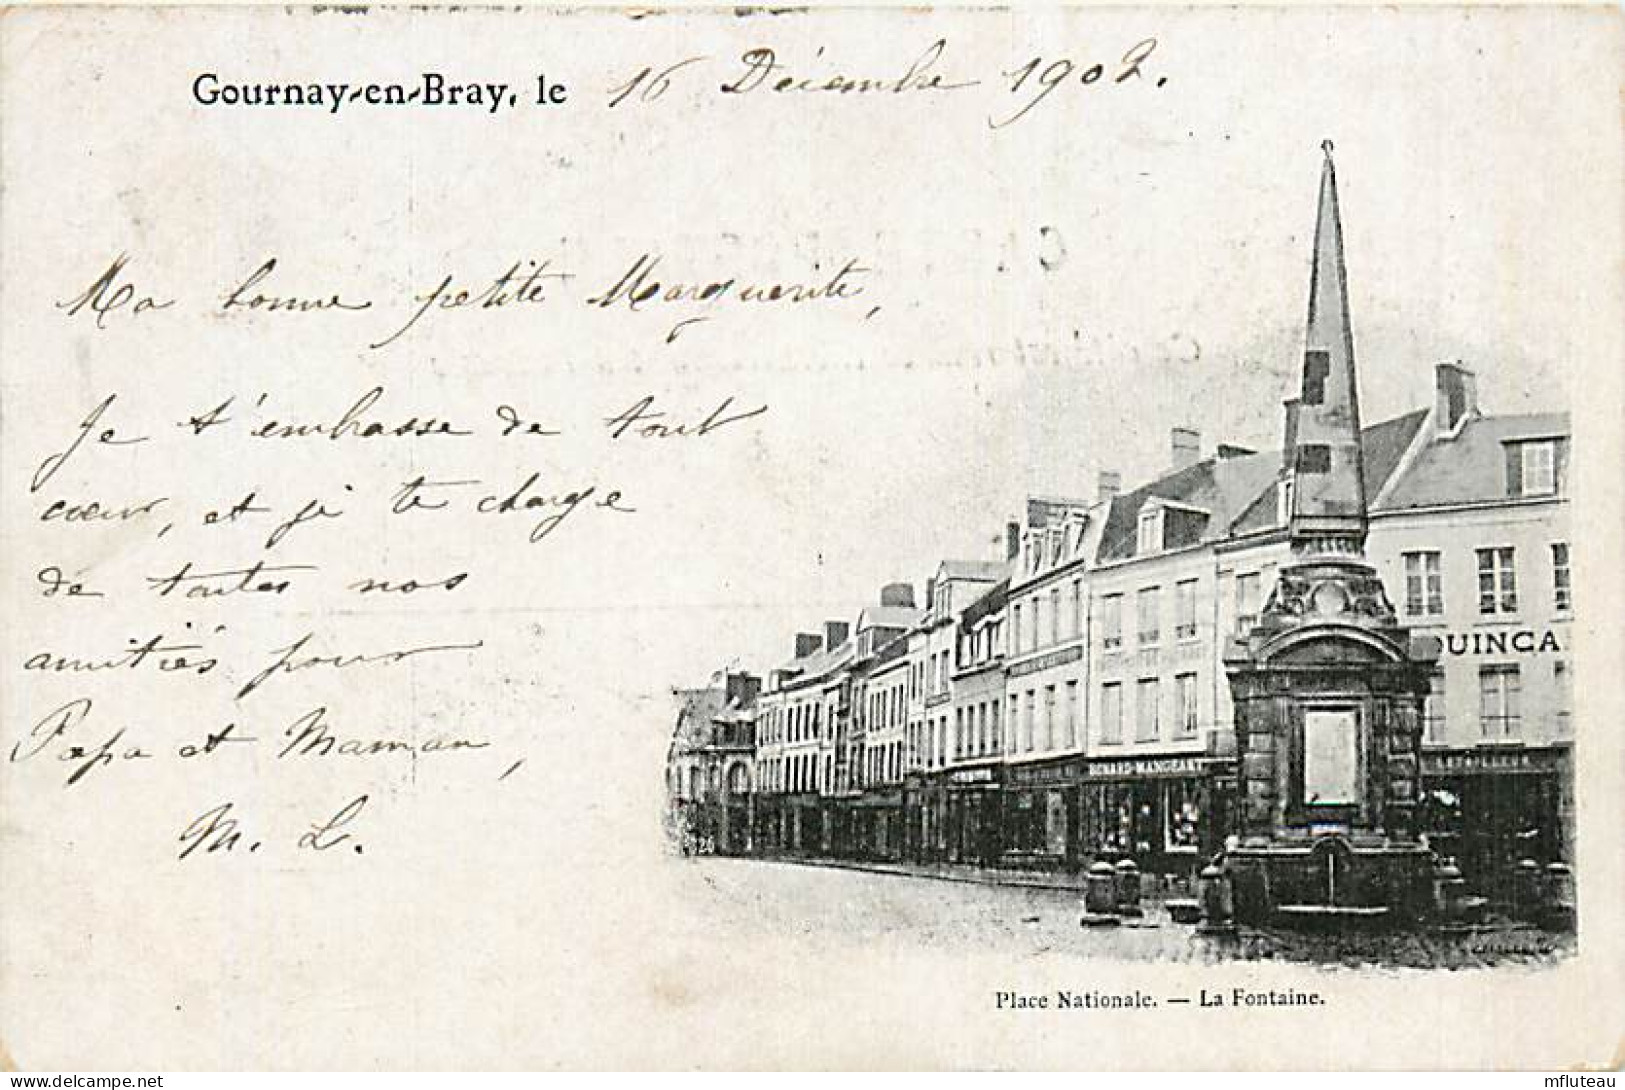 Gournay-en-Bray, le 16 Décembre 1902.
Ma bonne petite Marguerite,
Je t'embrasse de tout
cœur, et je te charge
de toutes nos
amitiés pour
Papa et Maman,
M. L.
QUINCA
BENARD-MANGEANT
Place Nationale. — La Fontaine.
mfluteau